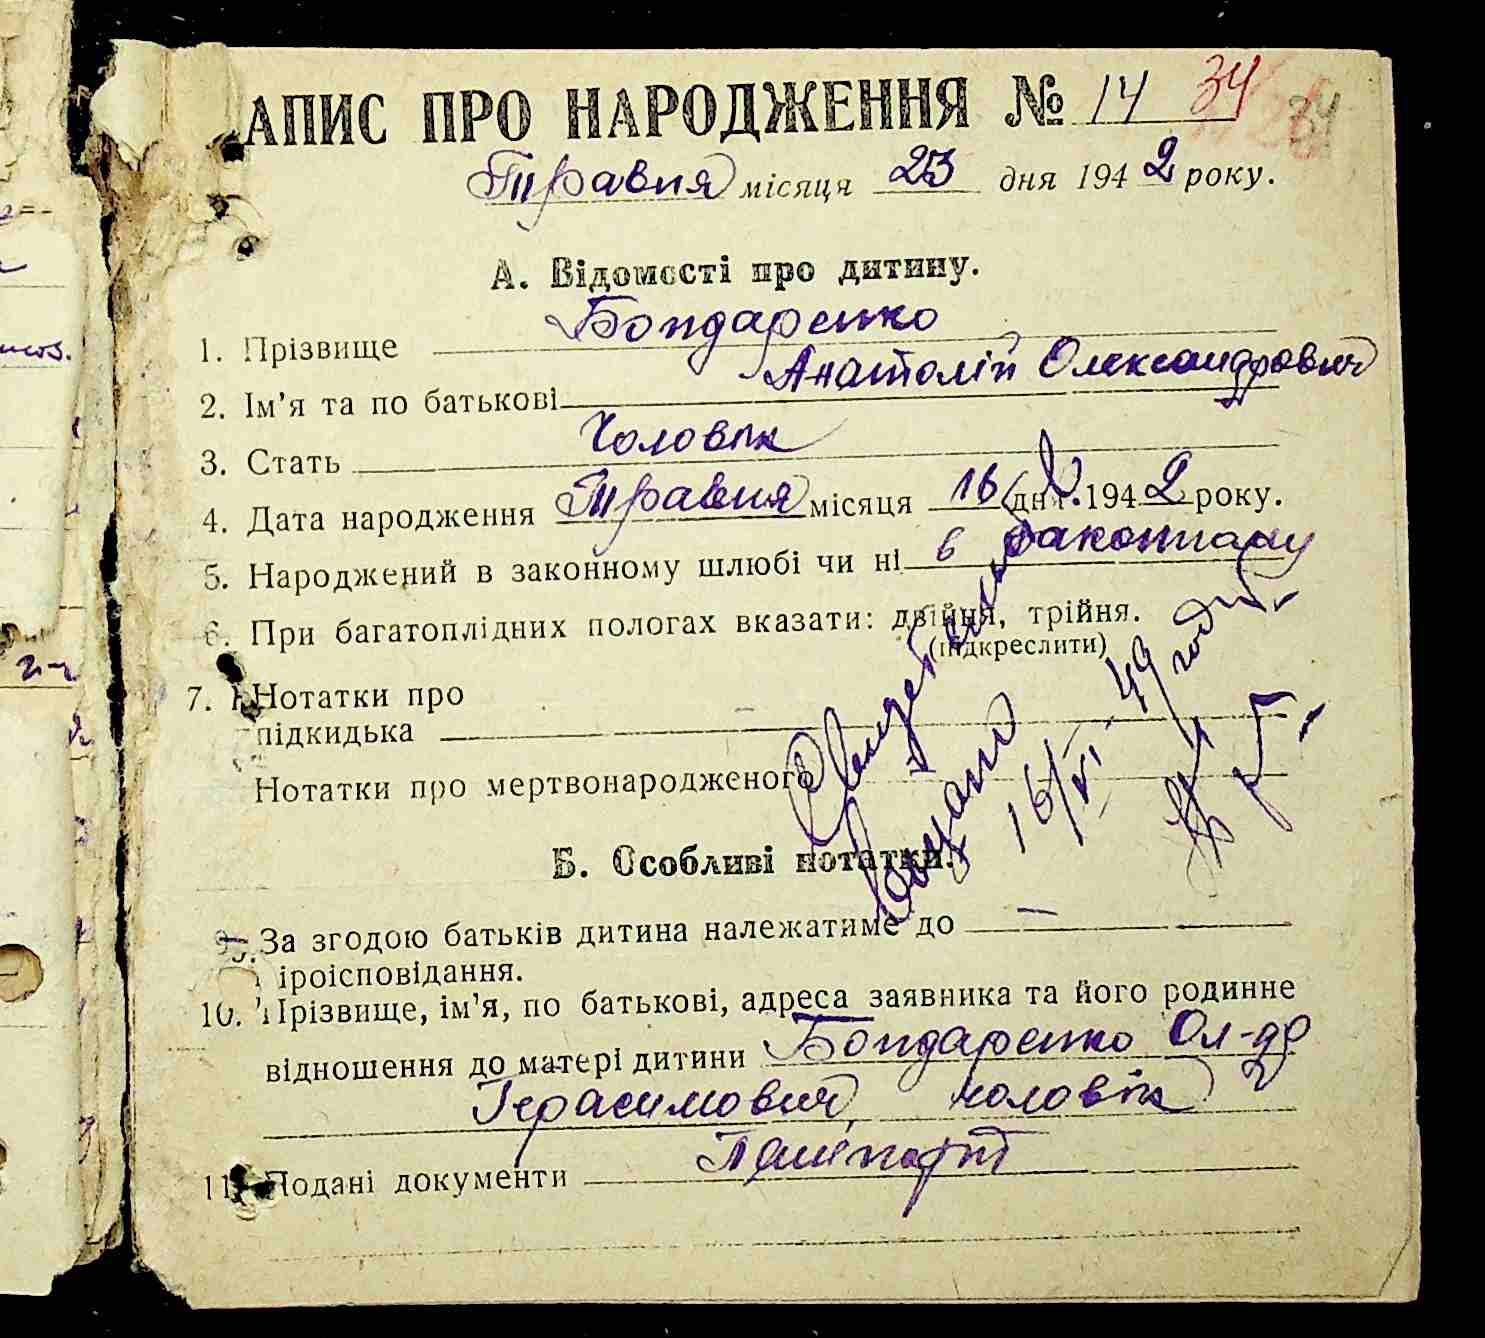 АПИС ПРО НАРОДЖЕННЯ № 14 34 34
Травня місяця 23 дня 1942 року.
А. Відомості про дитину.
1. Прізвище Бондаренко
2. Ім'я та по батькові Анатолій Олександрович
3. Стать Чоловік
4. Дата народження Травня місяця 16 дня 1942 року.
5. Народжений в законному шлюбі чи ні в законному
6. При багатоплідних пологах вказати: двійня, трійня.
(підкреслити)
7. Нотатки про
підкидька
Нотатки про мертвонародженого
16/VI 49 году
Б. Особливі нотатки.
9. За згодою батьків дитина належатиме до —
віроісповідання.
10. Прізвище, ім'я, по батькові, адреса заявника та його родинне
відношення до матері дитини Бондаренко Ол-др
Герасимович, чоловік
11. Подані документи Пашпорт